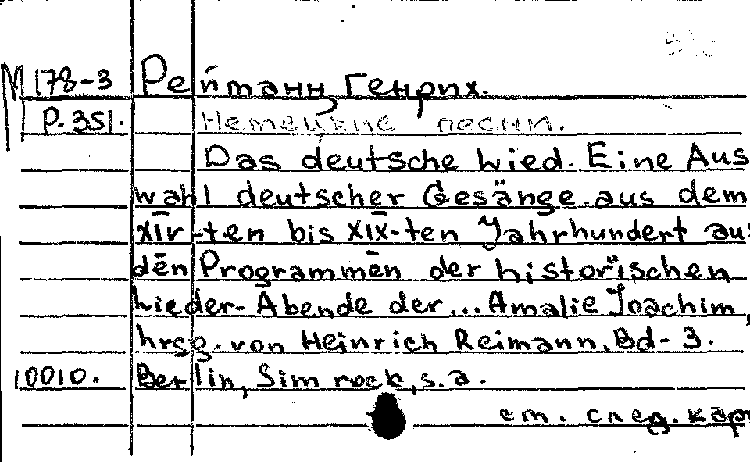 М 178-3 Рейтманн, Генрих.
Р. 351. Немецкие песни.
Das deutsche Lied. Eine Aus
wahl deutscher Gesänge aus dem
XIV-ten bis XIX-ten Jahrhundert aus
den Programmen der historischen
Lieder-Abende der... Amalie Joachim,
hrsg. von Heinrich Reimann. Bd-3.
10010. Berlin, Simrock, s.a.
см. след. кар